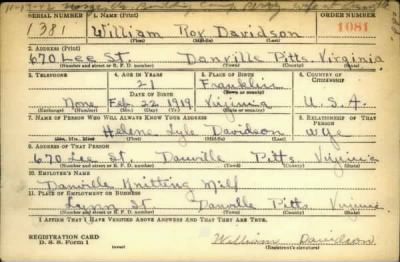 SERIAL NUMBER 1. NAME (Print) ORDER NUMBER
1381 William Roy Davidson 1081
(First) (Middle) (Last)
2. ADDRESS (Print)
670 Lee St. Danville Pitts. Virginia
(Number and street or R. F. D. number) (Town) (County) (State)
3. TELEPHONE 4. AGE IN YEARS 5. PLACE OF BIRTH 6. COUNTRY OF CITIZENSHIP
21 Franklin
DATE OF BIRTH
None Feb. 22 1919 Virginia U.S.A.
7. NAME OF PERSON WHO WILL ALWAYS KNOW YOUR ADDRESS 8. RELATIONSHIP OF THAT PERSON
Helene Lyle Davidson wife
(Mr., Mrs., Miss) (First) (Middle) (Last)
9. ADDRESS OF THAT PERSON
670 Lee St. Danville Pitts Virginia
(Number and street or R. F. D. number) (Town) (County) (State)
10. EMPLOYER'S NAME
Danville Knitting Mill
11. PLACE OF EMPLOYMENT OR BUSINESS
Lynn St. Danville Pitts Virginia
(Number and street or R. F. D. number) (Town) (County) (State)
I AFFIRM THAT I HAVE VERIFIED ABOVE ANSWERS AND THAT THEY ARE TRUE.
REGISTRATION CARD
D. S. S. Form 1 (over) William Davidson
(Registrant's signature)